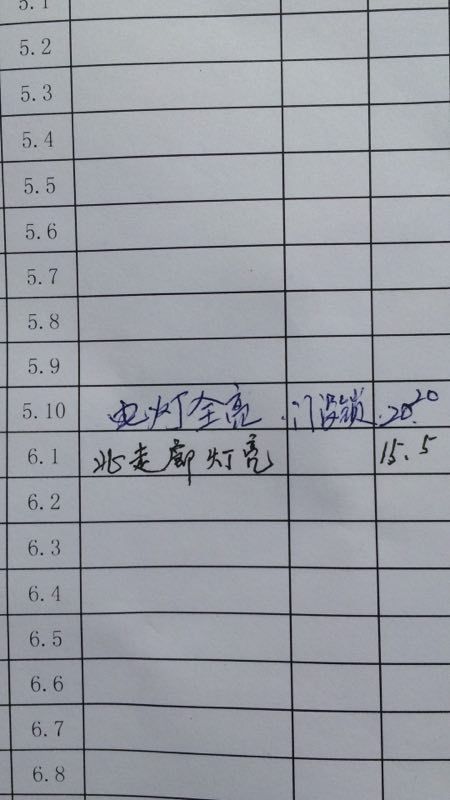 5.1
5.2
5.3
5.4
5.5
5.6
5.7
5.8
5.9
5.10 电灯全亮.门没锁.20.20
6.1 北走廊灯亮 15.5
6.2
6.3
6.4
6.5
6.6
6.7
6.8